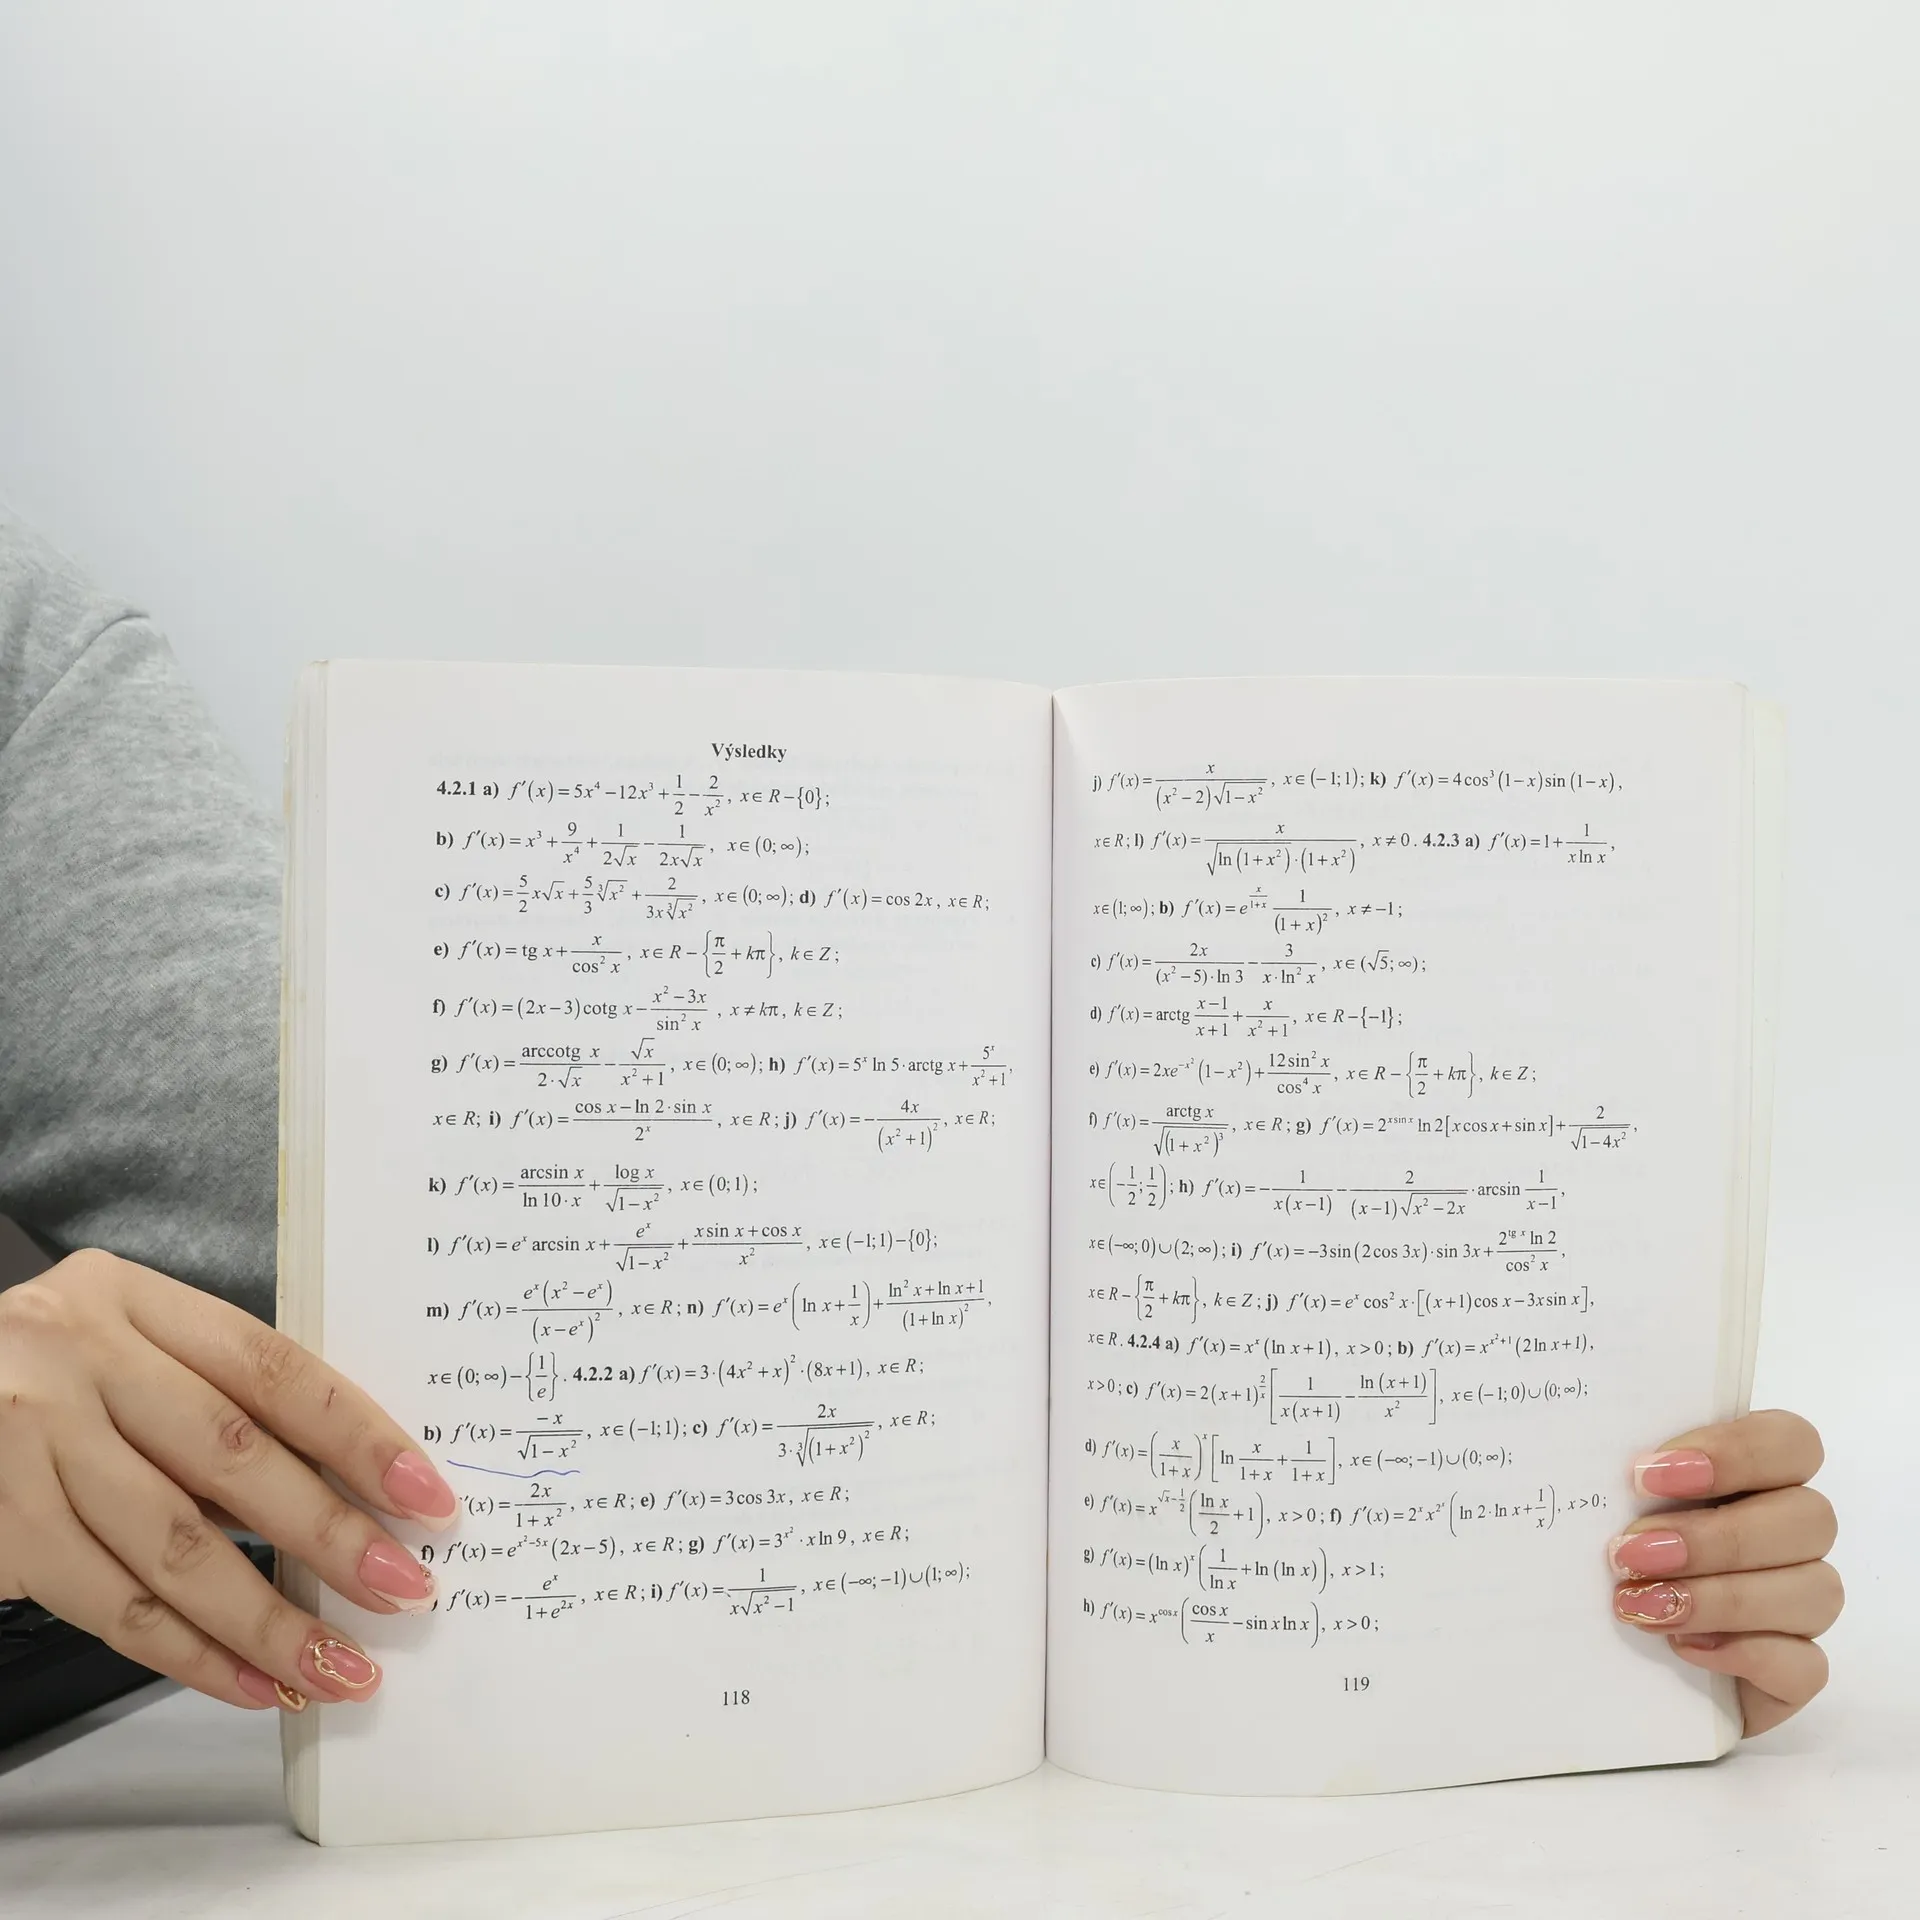 Výsledky
4.2.1 a) f′(x)=5x⁴−12x³+1/2−2/x², x∈R−{0};
b) f′(x)=x³+9/x⁴+1/(2√x)−1/(2x√x), x∈(0;∞);
c) f′(x)=5/2 x√x+5/3 ∛(x²)+2/(3x∛(x²)), x∈(0;∞); d) f′(x)=cos 2x, x∈R;
e) f′(x)=tg x+x/(cos² x), x∈R−{π/2+kπ}, k∈Z;
f) f′(x)=(2x−3)cotg x−(x²−3x)/(sin² x), x≠kπ, k∈Z;
g) f′(x)=(arccotg x)/(2·√x)−√x/(x²+1), x∈(0;∞); h) f′(x)=5ˣ ln 5·arctg x+5ˣ/(x²+1),
x∈R; i) f′(x)=(cos x−ln 2·sin x)/2ˣ, x∈R; j) f′(x)=−4x/(x²+1)², x∈R;
k) f′(x)=(arcsin x)/(ln 10·x)+(log x)/√(1−x²), x∈(0;1);
l) f′(x)=eˣ arcsin x+eˣ/√(1−x²)+(x sin x+cos x)/x², x∈(−1;1)−{0};
m) f′(x)=eˣ(x²−eˣ)/(x−eˣ)², x∈R; n) f′(x)=eˣ(ln x+1/x)+(ln² x+ln x+1)/(1+ln x)²,
x∈(0;∞)−{1/e}. 4.2.2 a) f′(x)=3·(4x²+x)²·(8x+1), x∈R;
b) f′(x)=−x/√(1−x²), x∈(−1;1); c) f′(x)=2x/(3·∛((1+x²)²)), x∈R;
′(x)=2x/(1+x²), x∈R; e) f′(x)=3cos 3x, x∈R;
f) f′(x)=e^(x²−5x)(2x−5), x∈R; g) f′(x)=3^(x²)·x ln 9, x∈R;
) f′(x)=−eˣ/(1+e²ˣ), x∈R; i) f′(x)=1/(x√(x²−1)), x∈(−∞;−1)∪(1;∞);
118
j) f′(x)=x/((x²−2)√(1−x²)), x∈(−1;1); k) f′(x)=4cos³(1−x)sin(1−x),
x∈R; l) f′(x)=x/(√(ln(1+x²))·(1+x²)), x≠0. 4.2.3 a) f′(x)=1+1/(x ln x),
x∈(1;∞); b) f′(x)=e^(x/(1+x)) 1/(1+x)², x≠−1;
c) f′(x)=2x/((x²−5)·ln 3)−3/(x·ln² x), x∈(√5;∞);
d) f′(x)=arctg (x−1)/(x+1)+x/(x²+1), x∈R−{−1};
e) f′(x)=2xe^(−x²)(1−x²)+(12sin² x)/(cos⁴ x), x∈R−{π/2+kπ}, k∈Z;
f) f′(x)=(arctg x)/√((1+x²)³), x∈R; g) f′(x)=2^(x sin x) ln 2[x cos x+sin x]+2/√(1−4x²),
x∈(−1/2;1/2); h) f′(x)=−1/(x(x−1))−2/((x−1)√(x²−2x))·arcsin 1/(x−1),
x∈(−∞;0)∪(2;∞); i) f′(x)=−3sin(2cos 3x)·sin 3x+(2^(tg x) ln 2)/(cos² x),
x∈R−{π/2+kπ}, k∈Z; j) f′(x)=eˣ cos² x·[(x+1)cos x−3x sin x],
x∈R. 4.2.4 a) f′(x)=xˣ(ln x+1), x>0; b) f′(x)=x^(x²+1)(2ln x+1),
x>0; c) f′(x)=2(x+1)^(2/x)[1/(x(x+1))−ln(x+1)/x²], x∈(−1;0)∪(0;∞);
d) f′(x)=(x/(1+x))ˣ[ln x/(1+x)+1/(1+x)], x∈(−∞;−1)∪(0;∞);
e) f′(x)=x^(√x−1/2)((ln x)/2+1), x>0; f) f′(x)=2ˣ x^(2ˣ)(ln 2·ln x+1/x), x>0;
g) f′(x)=(ln x)ˣ(1/(ln x)+ln(ln x)), x>1;
h) f′(x)=x^(cos x)((cos x)/x−sin x ln x), x>0;
119